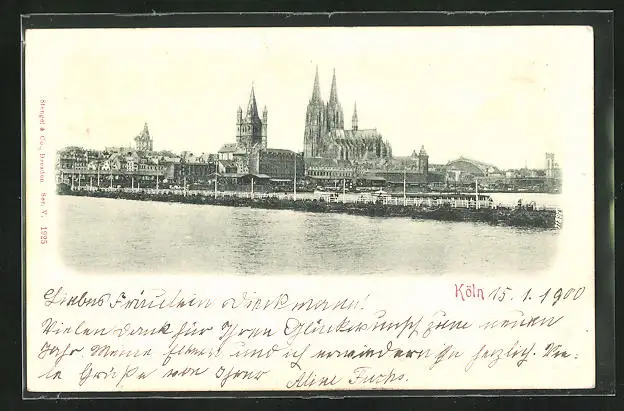 Stengel & Co., Dresden Ser. V. 1925
Köln 15. 1. 1900
Liebes Fräulein Dieckmann!
Vielen Dank für Ihren Glückwunsch zum neuen
Jahr. Meine Eltern und ich erwiedern ihn herzlich. Vie-
le Grüße von Ihrer Aline Fuchs.